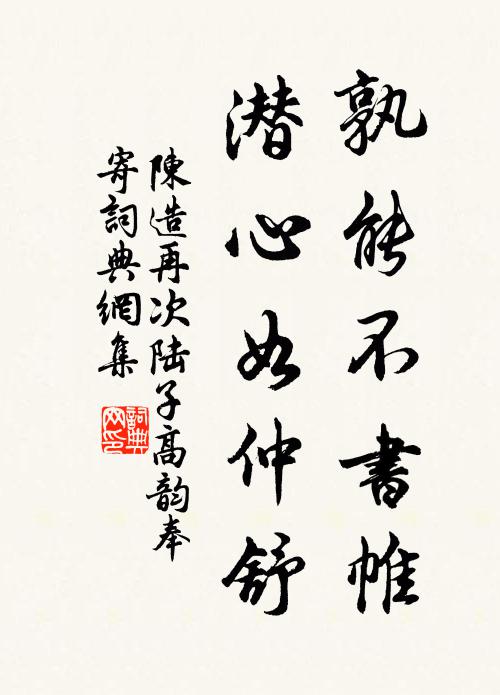 孰能不書帷
潜心如仲舒
陳造再次陆子高韵奉
寄詞典網集
詞典网印